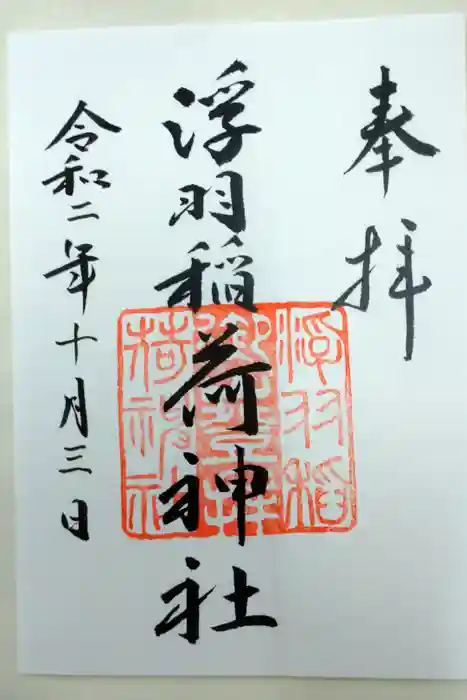 奉拝
浮羽稲荷神社
令和二年十月三日
浮羽稲
荷神社